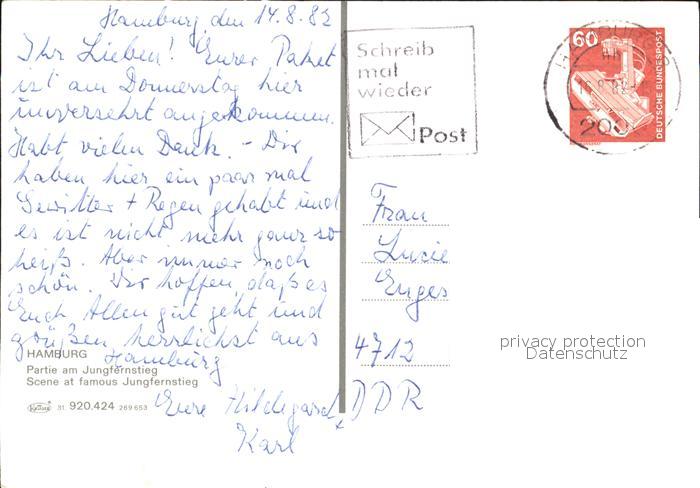 Hamburg den 14.8.82
Ihr Lieben! Eurer Paket
ist am Donnerstag hier
unversehrt angekommen.
Habt vielen Dank. - Wir
haben hier ein paar mal
Gewitter + Regen gehabt und
es ist nicht mehr ganz so
heiß. Aber immer noch
schön. Wir hoffen, daß es
Euch Allen gut geht und
grüßen herzlichst aus
Hamburg
Eure Hildegard +
Karl
HAMBURG
Partie am Jungfernstieg
Scene at famous Jungfernstieg
31. 920.424 269 653
Schreib
mal
wieder
Post
60
DEUTSCHE BUNDESPOST
Frau
Lucie
Enges
4712
DDR
privacy protection
Datenschutz